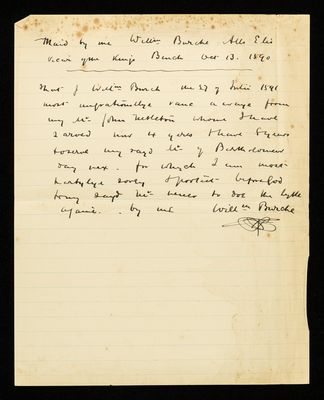 Maid by me Willm Burche Alls Elis
View yn Kings Bench Oct 13. 1590
That I Willm Burch the 27 of Julii 1591
most ungrationslye rane awaye from
my Mr. John Nettleton whome I have
sarved now 4 yeres & have 5 yeres
to serve my sayd Mr. of Bartholomew
day nex. for which I am most
hartylye sorky & protest before God
to my sayd Mr. never to doe the lyke
agane. . by me Willm Burche